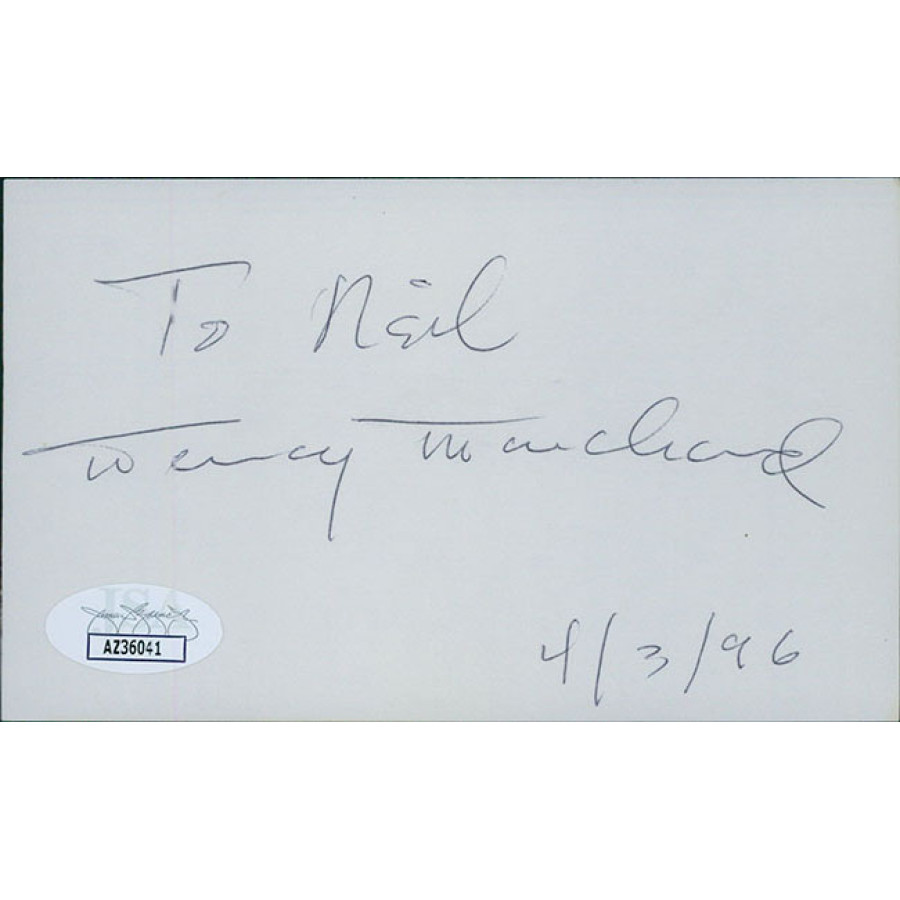 To Neil
Nancy Marchand
JSA
AZ36041
4/3/96